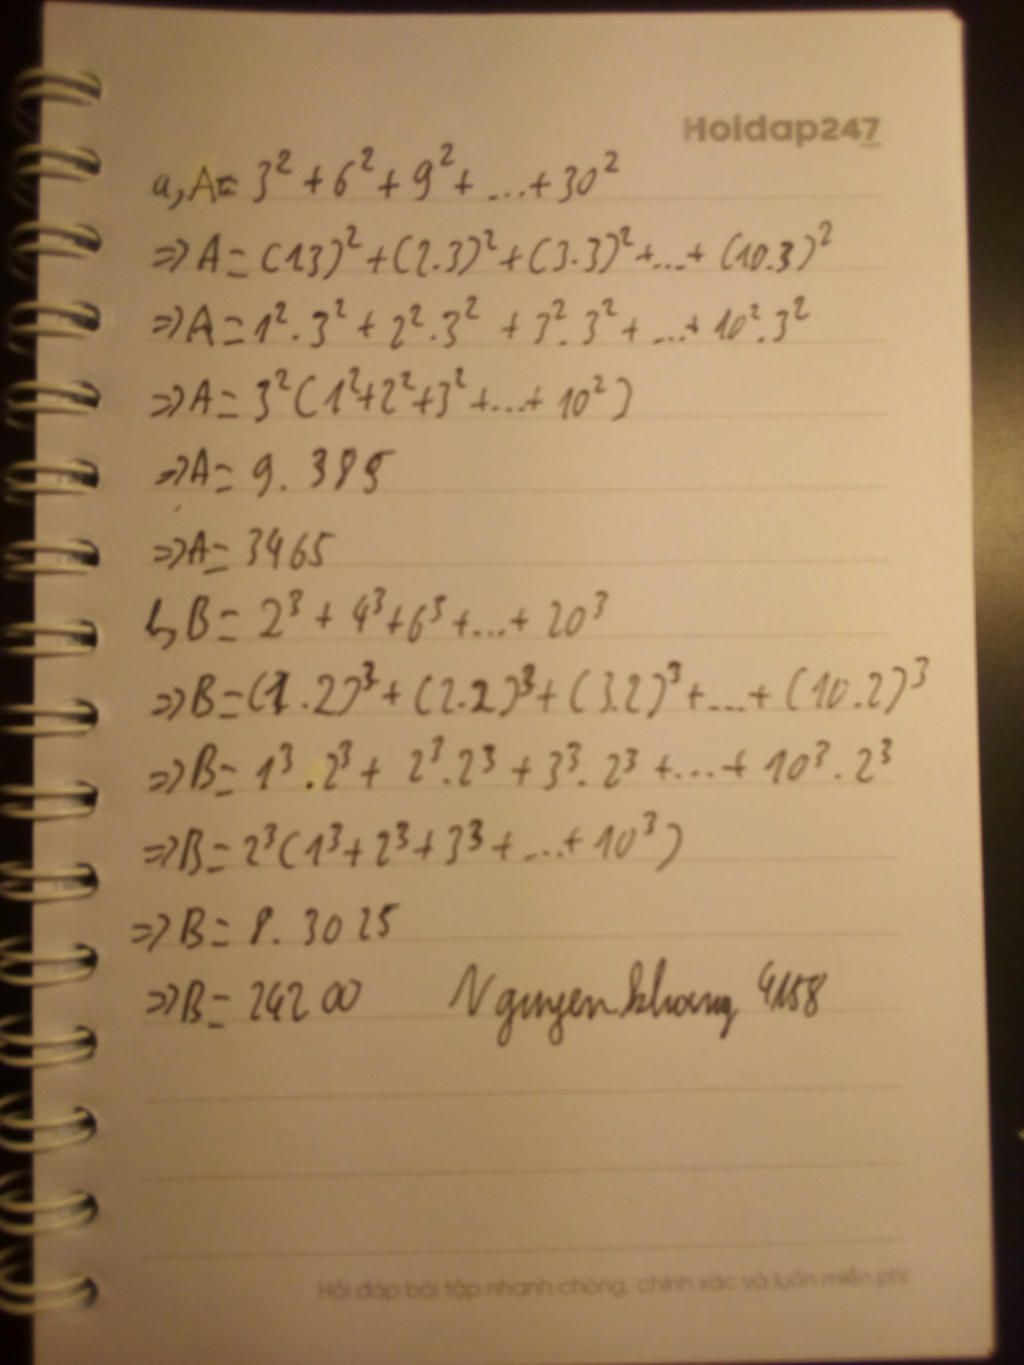 Hoidap247
a, A = 3² + 6² + 9² + ... + 30²
=> A = (1.3)² + (2.3)² + (3.3)² + ... + (10.3)²
=> A = 1² . 3² + 2² . 3² + 3² . 3² + ... + 10² . 3²
=> A = 3² (1² + 2² + 3² + ... + 10²)
=> A = 9 . 385
=> A = 3465
b, B = 2³ + 4³ + 6³ + ... + 20³
=> B = (1 . 2)³ + (2.2)³ + (3.2)³ + ... + (10 . 2)³
=> B = 1³ . 2³ + 2³ . 2³ + 3³ . 2³ + ... + 10³ . 2³
=> B = 2³ (1³ + 2³ + 3³ + ... + 10³)
=> B = 8 . 3025
=> B = 24200 Nguyenkhang 4158
Hỏi đáp bài tập nhanh chóng, chính xác và luôn miễn phí